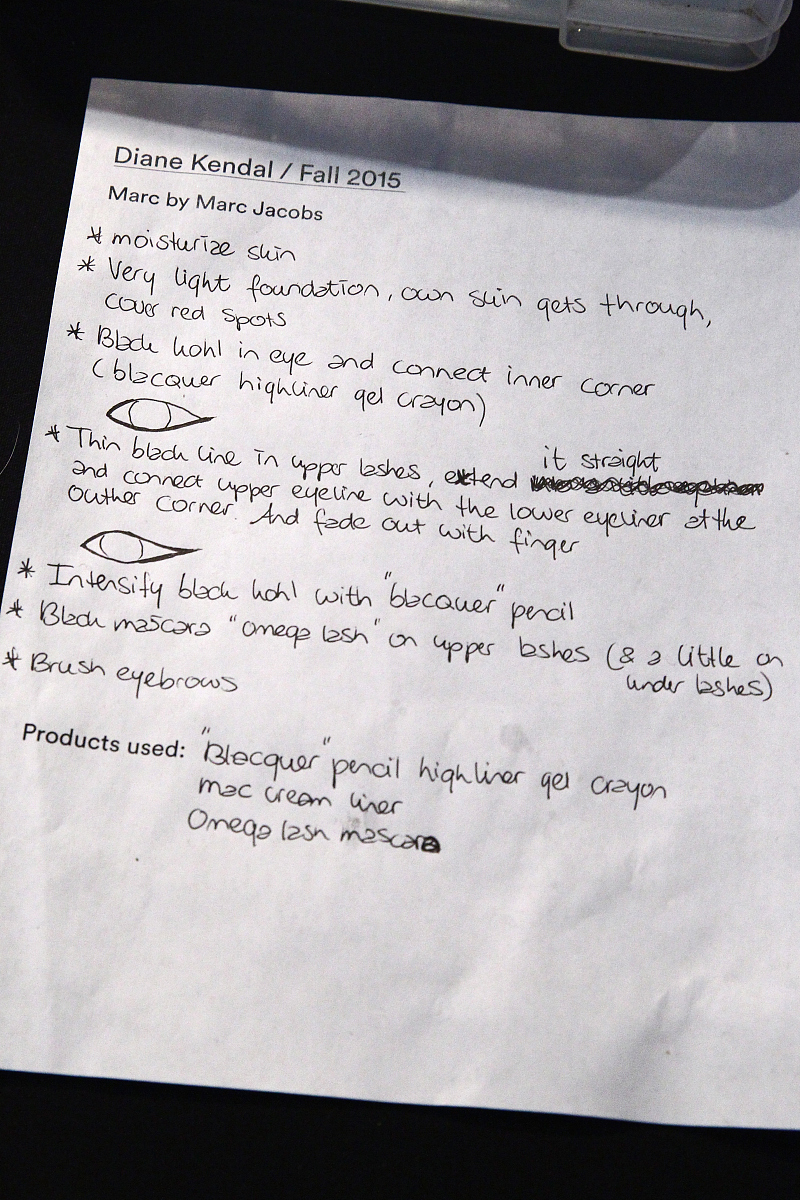 Diane Kendal / Fall 2015
Marc by Marc Jacobs
* moisturize skin
* Very light foundation, own skin gets through,
cover red spots
* Black kohl in eye and connect inner corner
(blacquer highliner gel crayon)
* Thin black line in upper lashes, extend it straight
and connect upper eyeline with the lower eyeliner at the
outher corner. And fade out with finger
* Intensify black kohl with "blacquer" pencil
* Black mascara "omega lash" on upper lashes (& a little on
under lashes)
* Brush eyebrows
Products used: "Blacquer" pencil highliner gel crayon
mac cream liner
Omega lash mascara